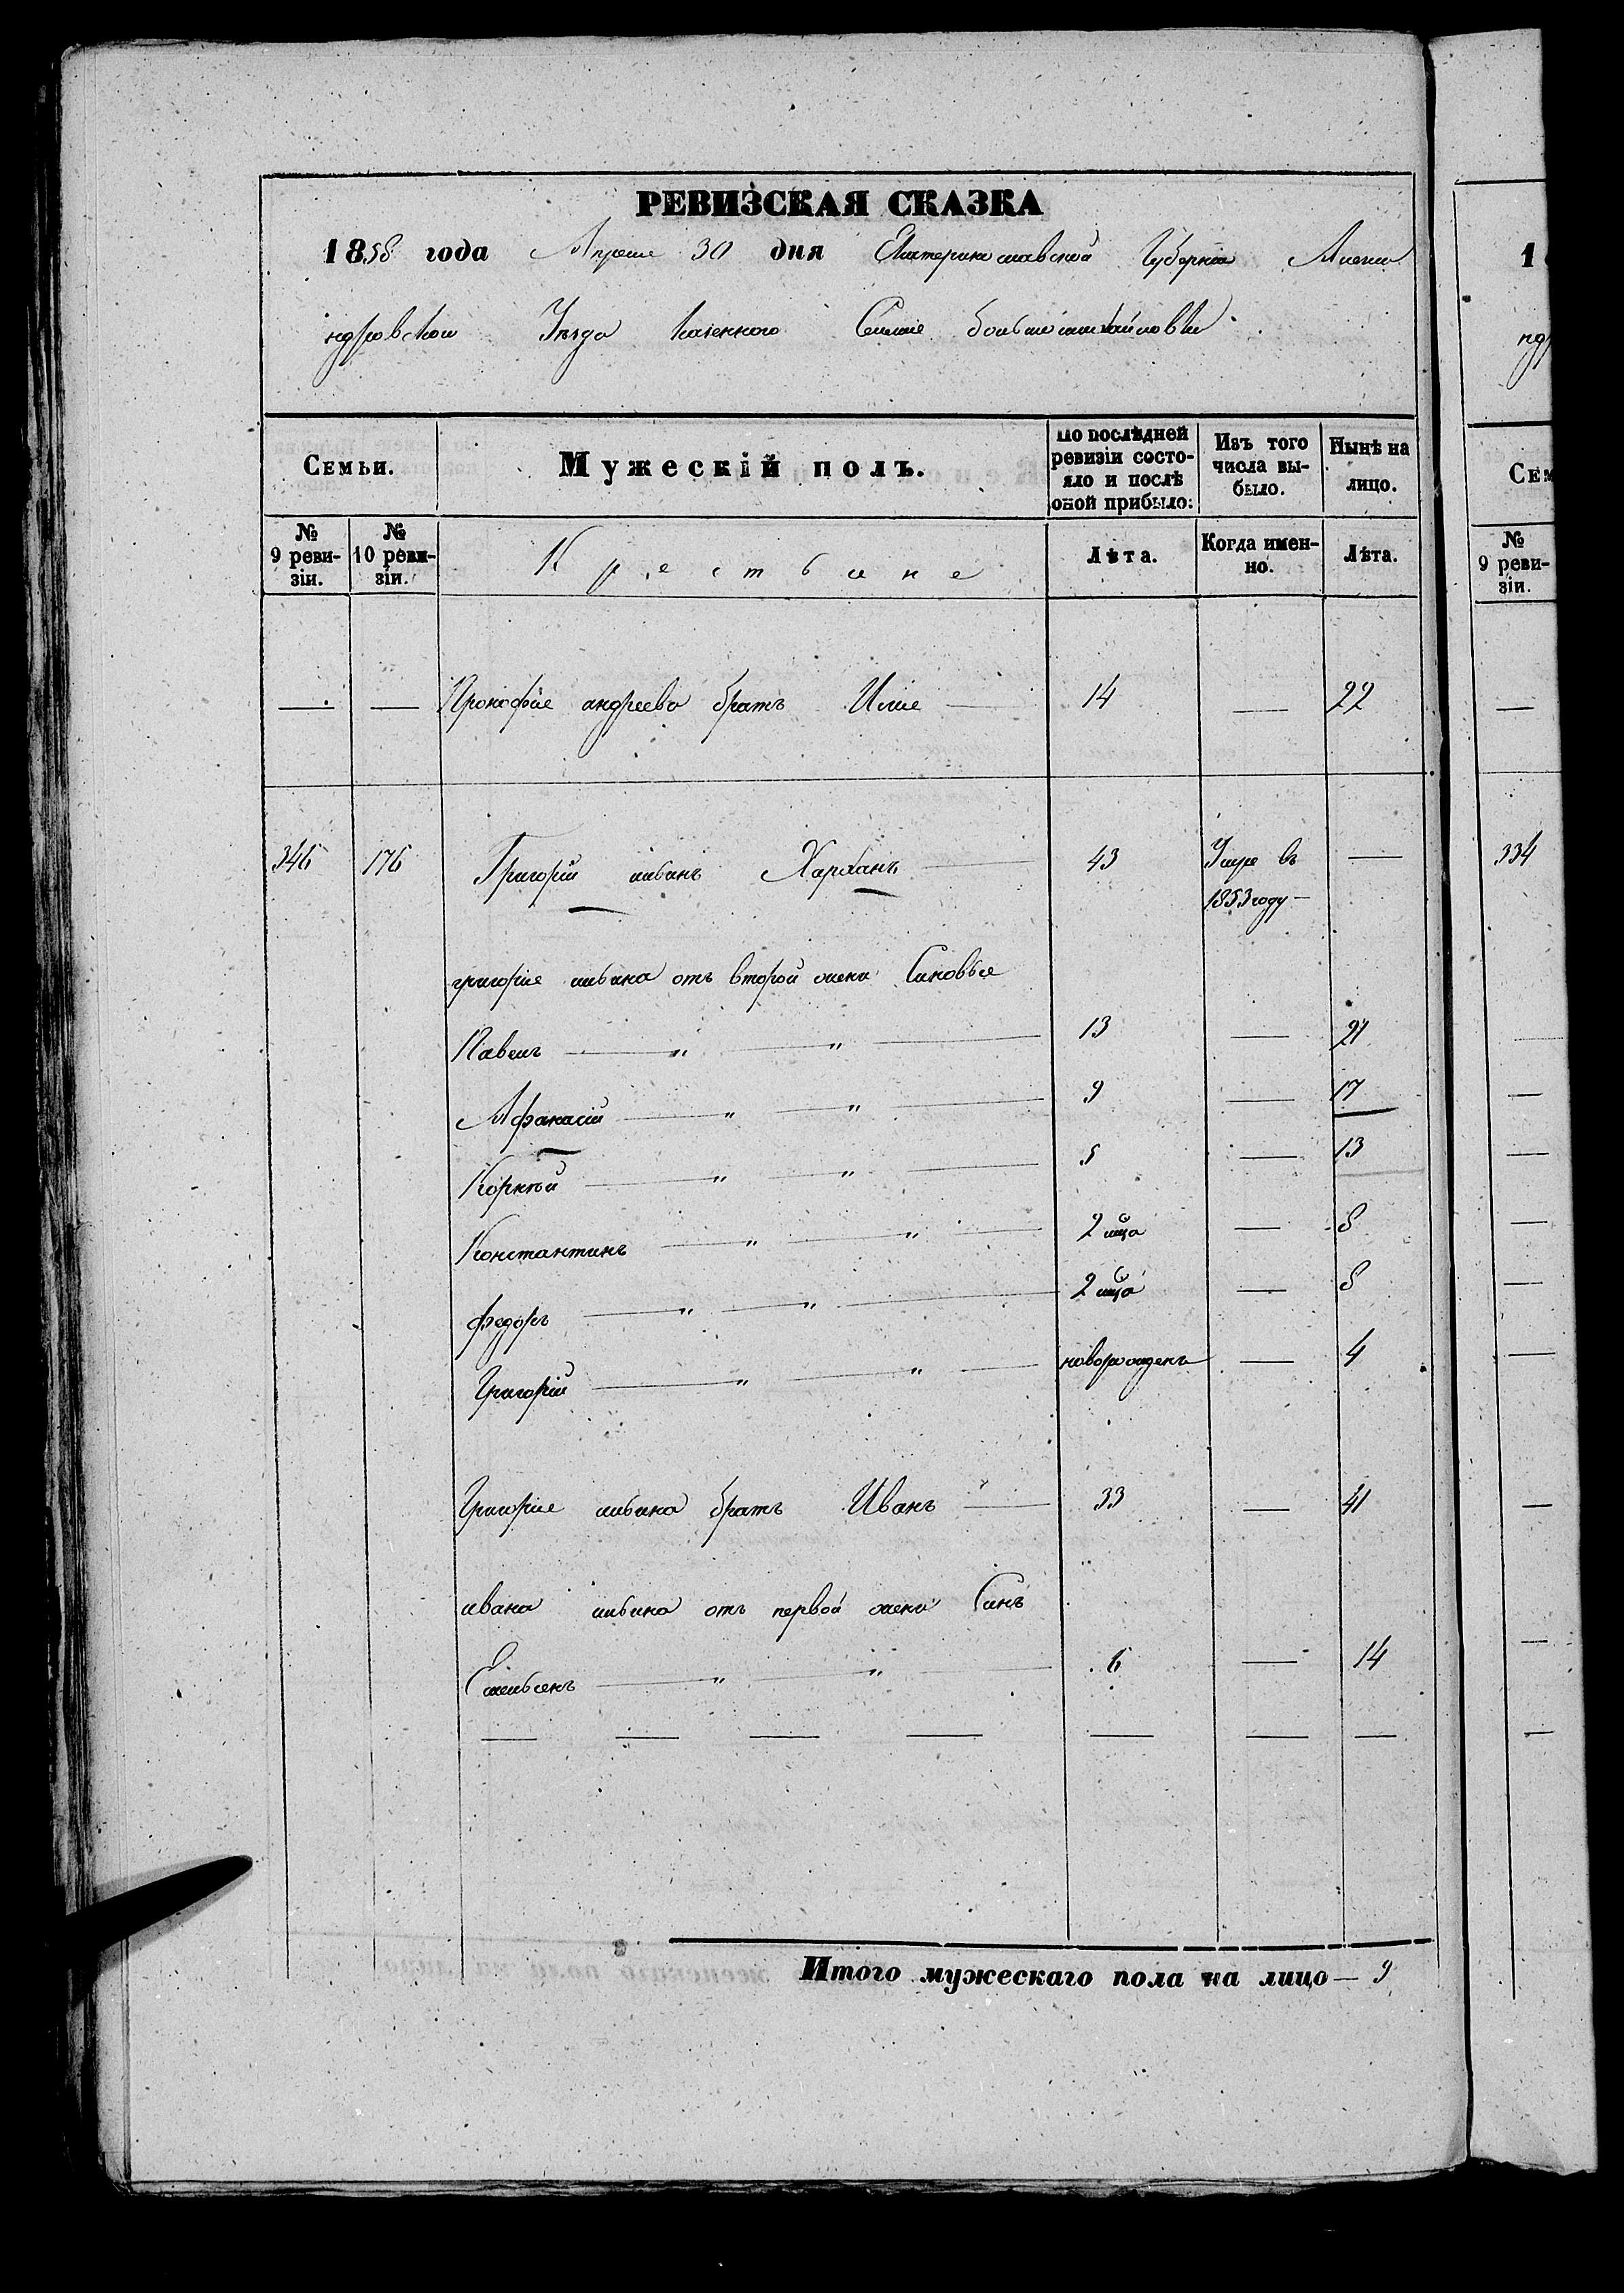 РЕВИЗСКАЯ СКАЗКА
1858 года Апреля 30 дня Екатеринославской Губернии Алекса
ндровского Уезда казенного Селения большемихайловки
Семьи.
Мужескій полъ.
По послѣдней ревизіи состояло и послѣ оной прибыло:
Изъ того числа выбыло.
Нынѣ на лицо.
№ 9 ревизіи.
№ 10 ревизіи.
Крестьяне
Лѣта.
Когда именно.
Лѣта.
— — Прокофія андреева братъ Илія — 14 — 22
346 176 Григорій Харханъ — 43 Умре въ —
1853 году —
григорія отъ второй жени Синовья
Павелъ — „ — „ — 13 — 21
Афанасій — „ — „ — 9 — 17
Корнѣй — „ — „ — 5 — 13
Константинъ — „ — „ — 2 мца — 8
федоръ — „ — „ — 2 мца — 8
Григорій — „ — „ — новорожденъ — 4
Григорія братъ Иванъ — 33 — 41
ивана отъ первой жени Синъ
Емельянъ — „ — „ — 6 — 14
— — — — — — —
Итого мужескаго пола на лицо — 9
1
ндр
Сем
№ 9 ревизіи.
334